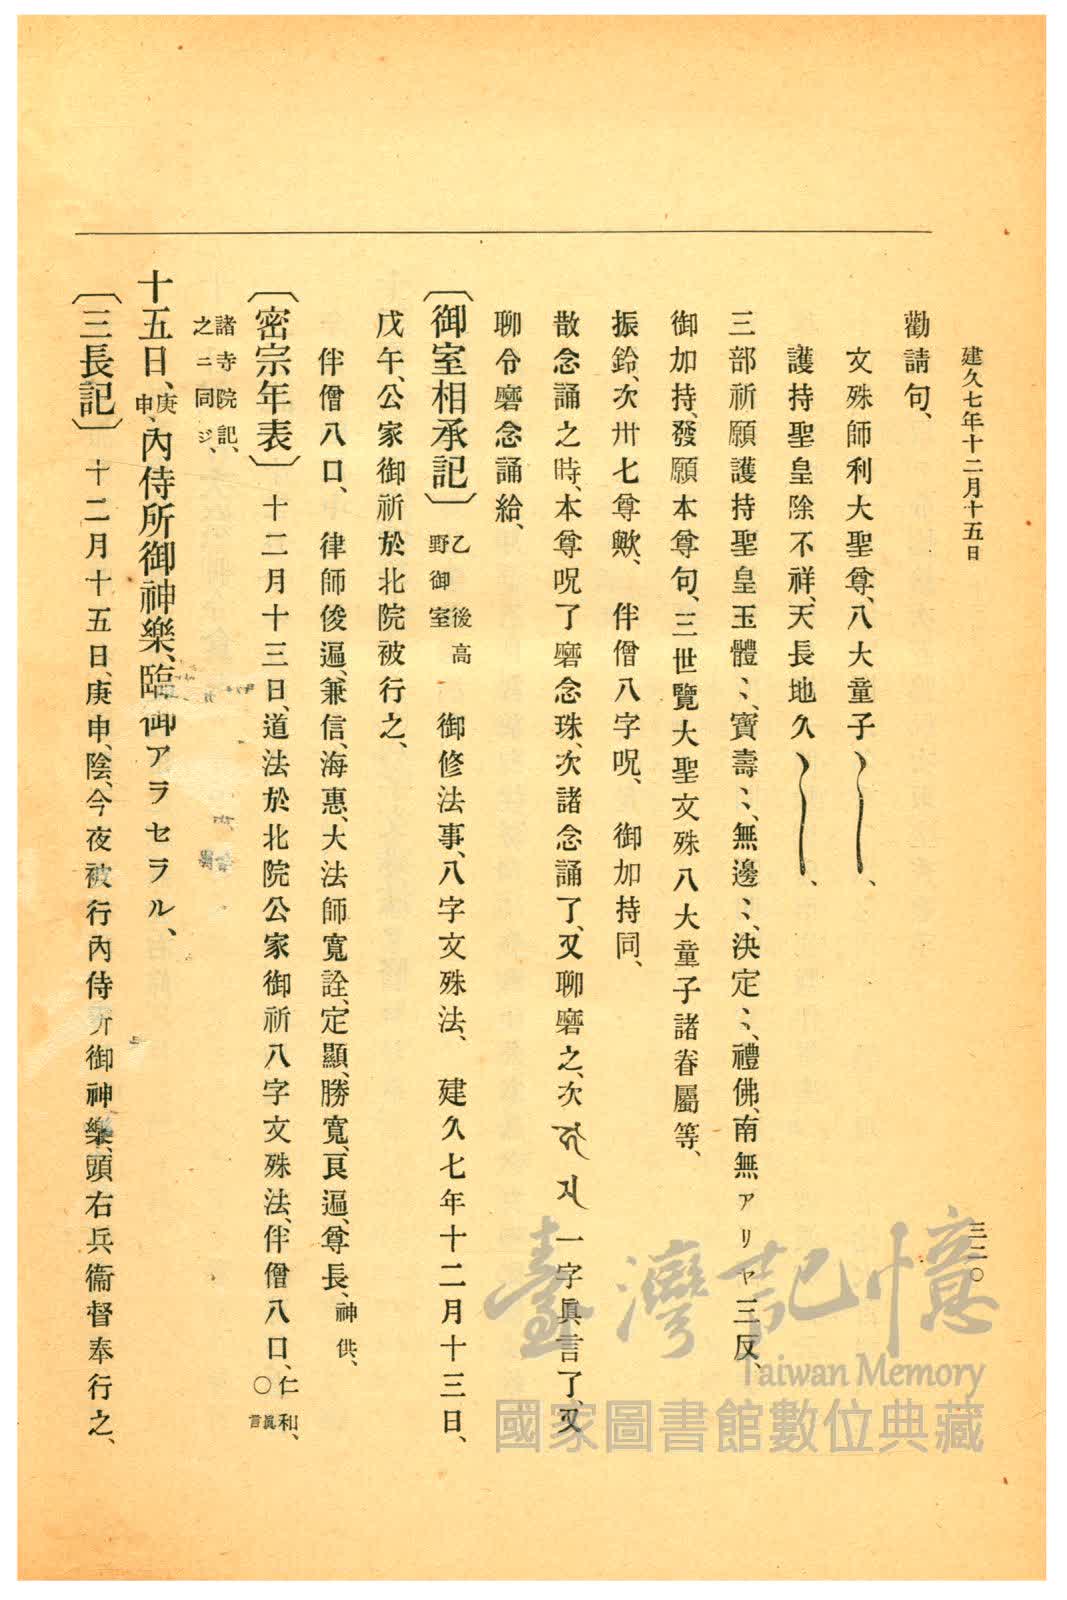 建久七年十二月十五日
三二〇
勸請句、
文殊師利大聖尊、八大童子〳〵、
護持聖皇除不祥、天長地久〳〵、
三部祈願護持聖皇玉體〻、寶壽〻、無邊〻、決定〻、禮佛、南無アリヤ三反、
御加持、發願本尊句、三世覽大聖文殊八大童子諸眷屬等、
振鈴、次卅七尊歟、 伴僧八字呪、 御加持同、
散念誦之時、本尊呪了磨念珠、次諸念誦了、又聊磨之、次 一字眞言了、又
聊令磨念誦給、
〔御室相承記〕 乙 後高野御室 御修法事、八字文殊法、 建久七年十二月十三日、
戊午、公家御祈於北院被行之、
伴僧八口、 律師俊遍、兼信、海惠、大法師寬詮、定顯、勝寬、良遍、尊長、神供、
〔密宗年表〕 十二月十三日、道法於北院公家御祈八字文殊法、伴僧八口、仁和、眞言〇
諸寺院記、之ニ同ジ、
十五日、庚申、內侍所御神樂、臨御アラセラル、
〔三長記〕 十二月十五日、庚申、陰、今夜被行內侍所御神樂、頭右兵衞督奉行之、
臺灣記憶
Taiwan Memory
國家圖書館數位典藏